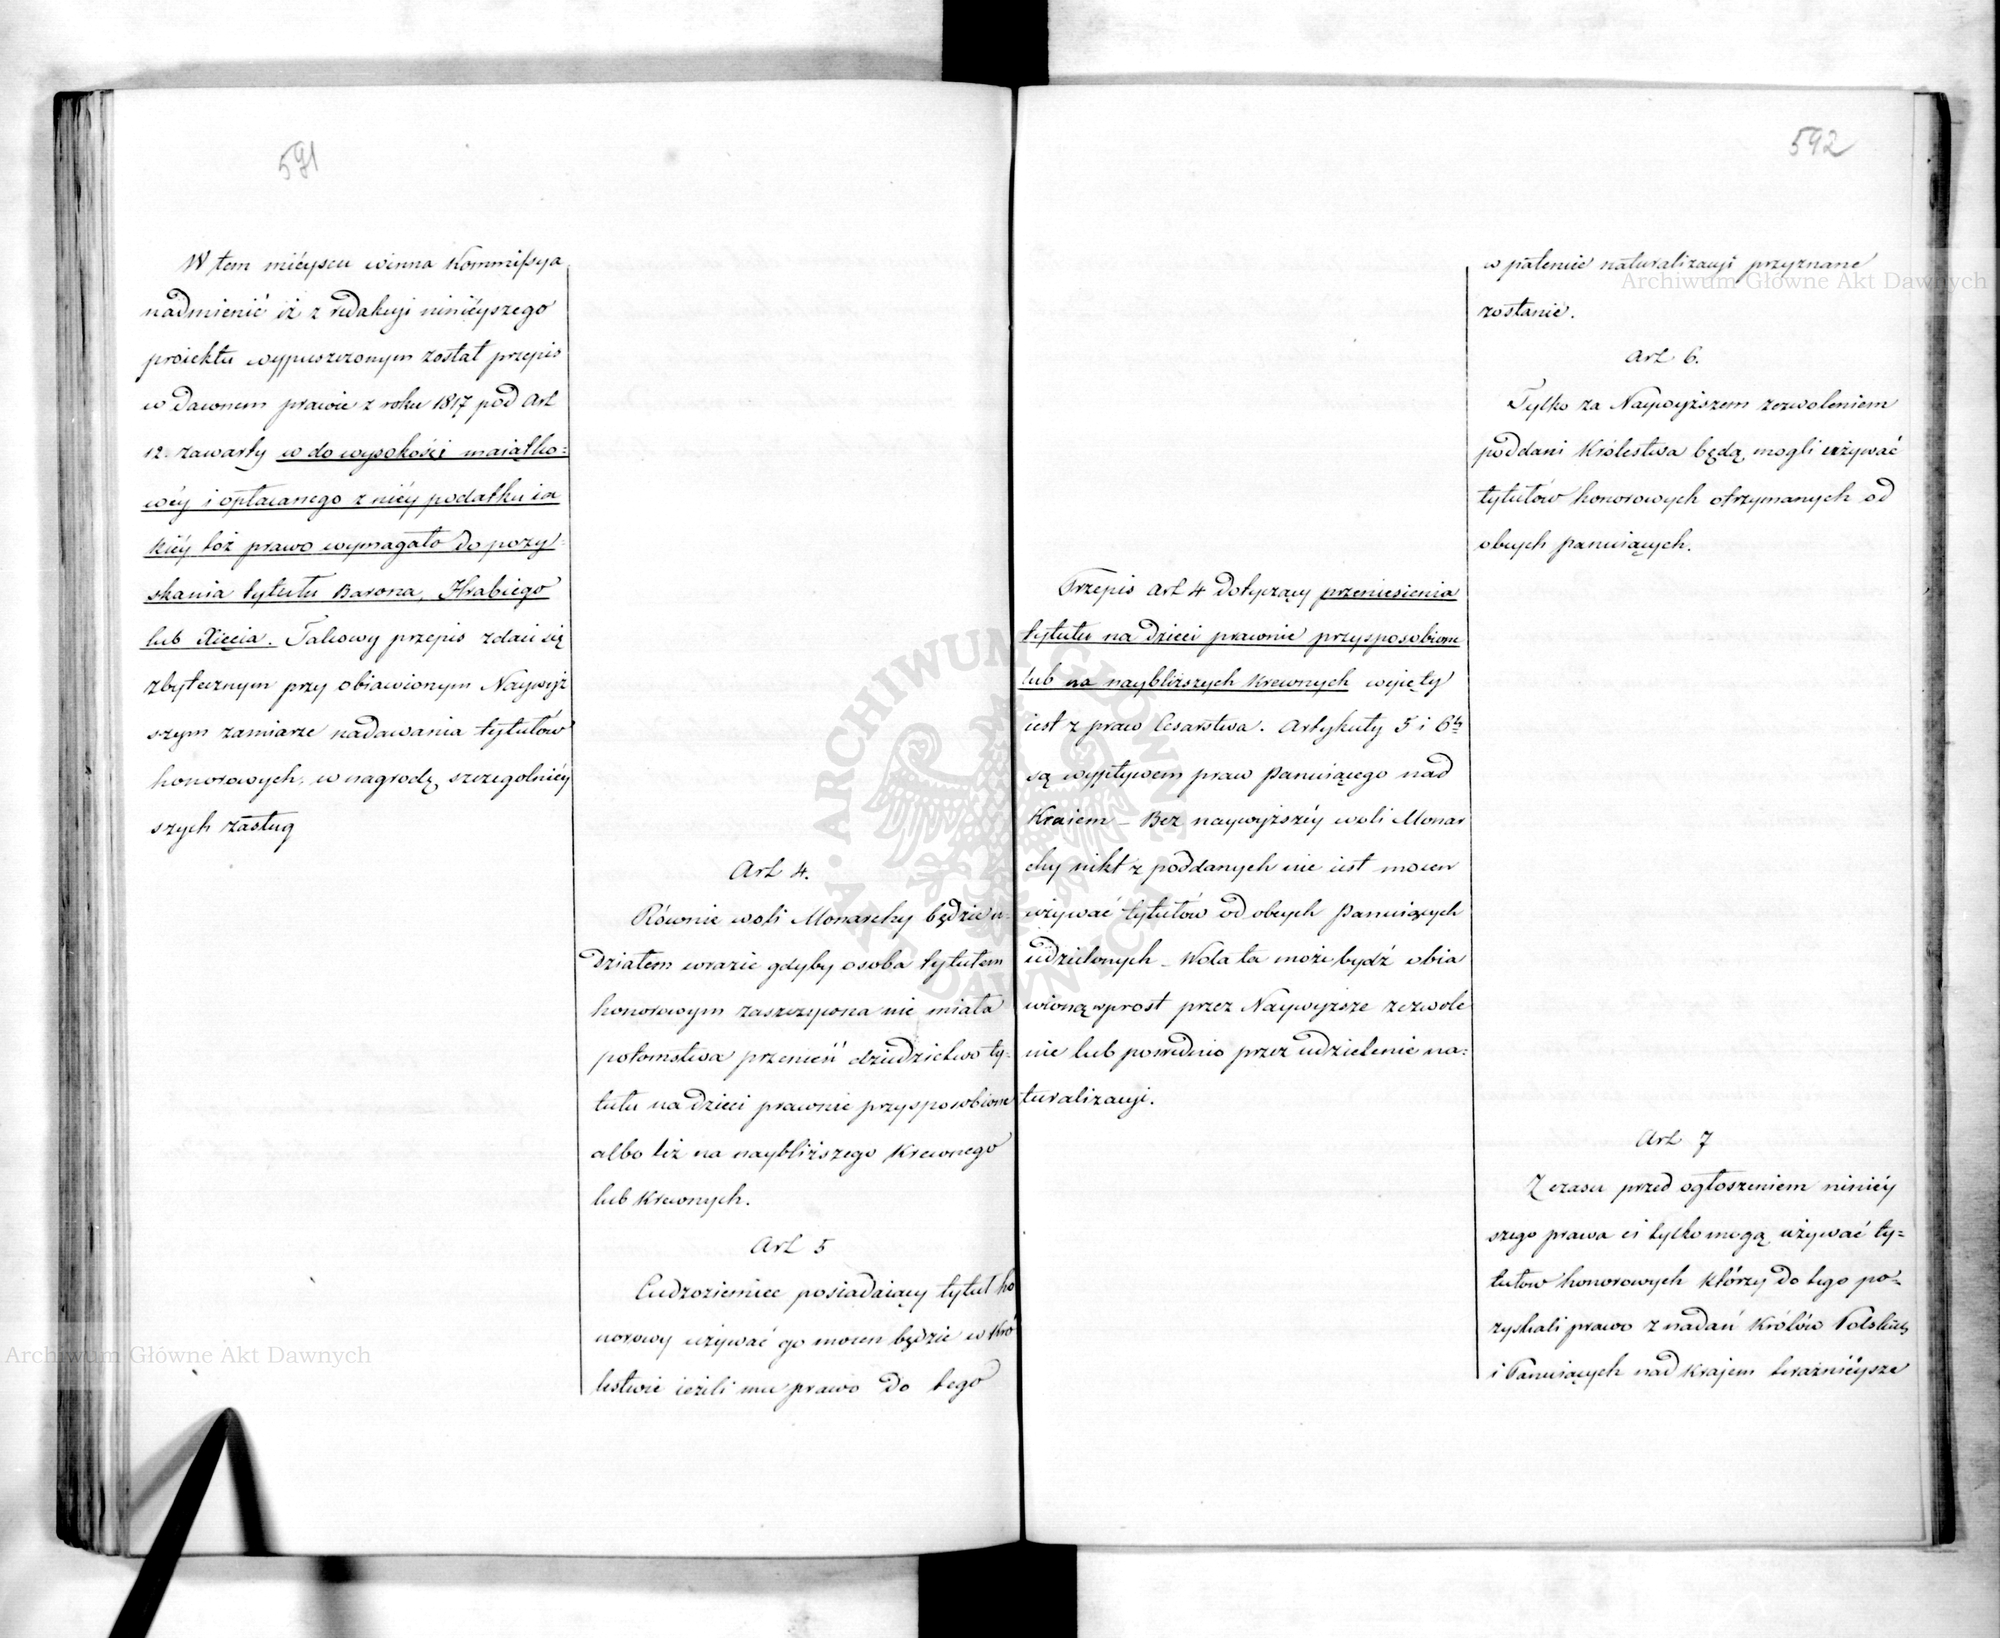 591
W tem mieyscu winna Kommissya
nadmienić iż z redakcyi ninieyszego
proiektu wypuszczonym został przepis
w dawnem prawie z roku 1817 pod Art
12. zawarty w do wysokości maiątko=
wéy i opłacanego z niéy podatku ia
kiéy też prawo wymagało do pozy=
skania tytułu Barona, Hrabiego
lub Xięcia. Takowy przepis zdaie się
zbytecznym przy obiawionym Naywyż
szym zamiarze nadawania tytułów
honorowych, w nagrodę szczegolniéy
szych zasług
Art 4.
Równie woli Monarchy będzie u=
działem wrazie gdyby osoba tytułem
honorowym zaszczycona nie miała
potomstwa przenieść dziedzictwo ty=
tułu na dzieci prawnie przysposobione
albo też na naybliższego Krewnego
lub Krewnych.
Art 5
Cudzoziemiec posiadaiący tytuł ho
norowy używać go mocen będzie w Kró
lestwie ieżeli mu prawo do tego
592
Przepis Art 4 dotyczący przeniesienia
tytułu na dzieci prawnie przysposobione
lub na naybliższych Krewnych wyięty
iest z praw Cesarstwa. Artykuły 5 i 6ty
są wypływem praw Panuiącego nad
Kraiem – Bez naywyższéy woli Monar
chy nikt z poddanych nie iest mocen
używać tytułów od obcych Panuiących
udzielonych – Wola ta może bydź obia
wioną wprost przez Naywyższe zezwole
nie lub posrednio przez udzielenie na=
turalizacyi.
w patencie naturalizacyi przyznane
zostanie.
Art 6.
Tylko za Naywyższem zezwoleniem
poddani Królestwa będą mogli używać
tytułów honorowych otrzymanych od
obcych Panuiących.
Art 7
Z czasu przed ogłoszeniem niniéy
szego prawa ci tylko mogą używać ty=
tułow honorowych którzy do tego po=
zyskali prawo z nadań Królów Polskich
i Panuiących nad krajem teraźniéysze
Archiwum Główne Akt Dawnych
Archiwum Główne Akt Dawnych
ARCHIWUM GŁÓWNE AKT DAWNYCH